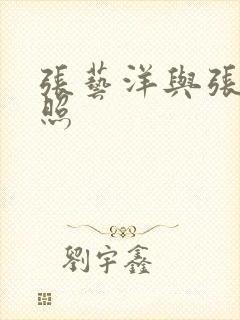 張藝洋與張
照
劉宇鑫